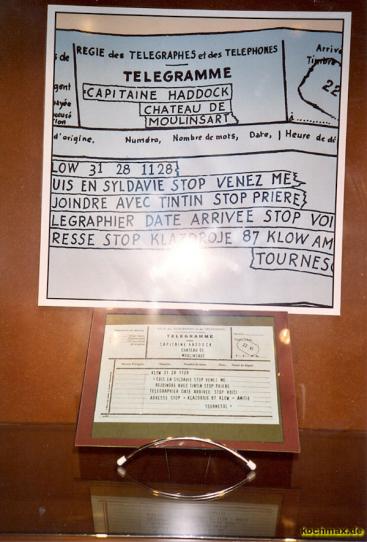 REGIE des TELEGRAPHES et des TELEPHONES
TELEGRAMME
CAPITAINE HADDOCK
CHATEAU DE
MOULINSART
Arrivé
Timbre
22
d'origine, Numéro, Nombre de mots, Date, Heure de dé
LOW 31 28 1128
UIS EN SYLDAVIE STOP VENEZ ME
JOINDRE AVEC TINTIN STOP PRIERE
LEGRAPHIER DATE ARRIVEE STOP VOI
RESSE STOP KLAZDROJE 87 KLOW AM
TOURNES
TELEGRAMME
CAPITAINE HADDOCK
CHATEAU DE
MOULINSART
KLOW 31 28 1128
SUIS EN SYLDAVIE STOP VENEZ ME
REJOINDRE AVEC TINTIN STOP PRIERE
TELEGRAPHIER DATE ARRIVEE STOP VOICI
ADRESSE STOP KLAZDROJE 87 KLOW AMITIE
TOURNESOL
kochmax.de